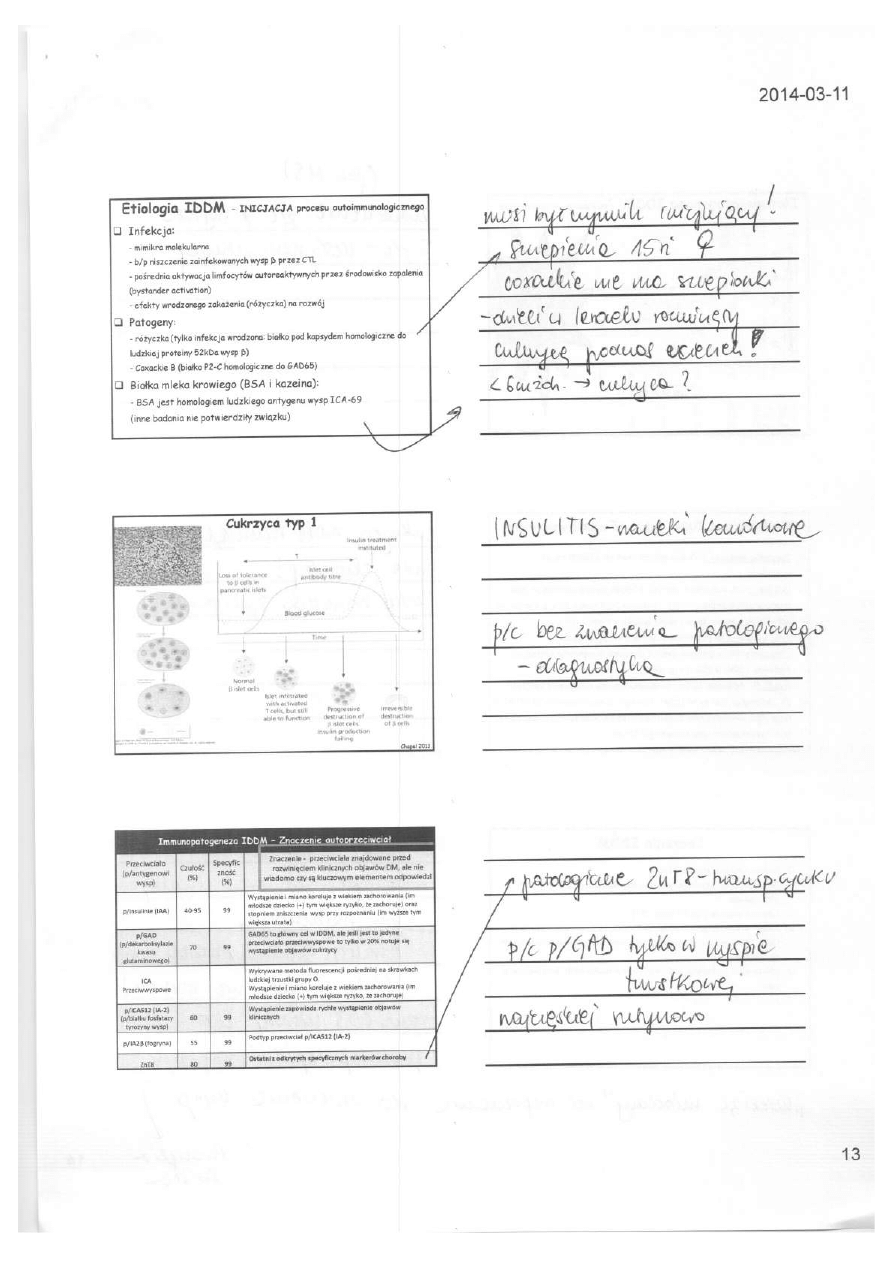 2014-03-11
Etiologia IDDM - INICJACJA procesu autoimmunologicznego
❑ Infekcja:
- mimikra molekularna
- b/p niszczenie zainfekowanych wysp β przez CTL
- pośrednia aktywacja limfocytów autoreaktywnych przez środowisko zapalenia
(bystander activation)
- efekty wrodzonego zakażenia (różyczka) na rozwój
❑ Patogeny:
- różyczka (tylko infekcja wrodzona: białko pod kapsydem homologiczne do
ludzkiej proteiny 52kDa wysp β)
- Coxackie B (białko P2-C homologiczne do GAD65)
❑ Białka mleka krowiego (BSA i kazeina):
- BSA jest homologiem ludzkiego antygenu wysp ICA-69
(inne badania nie potwierdziły związku)
musi być czynnik inicjujący!
Szczepienia 15rż ♀
coxackie nie ma szczepionki
- dzieci u
cukrzycę podczas
→ cukrzyca?
Cukrzyca typ 1
Insulin treatment
instituted
?
Loss of tolerance
to β cells in
pancreatic islets
Islet cell
antibody titre
Blood glucose
Time
Normal
β islet cells
Islet infiltrated
with activated
T cells, but still
able to function
Progressive
destruction of
β islet cells
Insulin production
falling
Irreversible
destruction
of β cells
Chapel 2011
INSULITIS - nacieki komórkowe
p/c bez znaczenia patologicznego
- diagnostyka
Immunopatogeneza IDDM – Znaczenie autoprzeciwciał
Przeciwciało
(p/antygenowi
wysp)
Czułość
(%)
Specyfic
zność
(%)
Znaczenie - przeciwciała znajdowane przed
rozwinięciem klinicznych objawów DM, ale nie
wiadomo czy są kluczowym elementem odpowiedzi
p/insulinie (IAA)
40-95
99
Wystąpienie i miano koreluje z wiekiem zachorowania (im
młodsze dziecko (+) tym większe ryzyko, że zachoruje) oraz
stopniem zniszczenia wysp przy rozpoznaniu (im wyższe tym
większa utrata)
p/GAD
(p/dekarboksylazie
kwasu
glutaminowego)
70
99
GAD65 to główny cel w IDDM, ale jeśli jest to jedyne
przeciwciało przeciwwyspowe to tylko w 20% notuje się
wystąpienie objawów cukrzycy
ICA
Przeciwwyspowe
Wykrywane metodą fluorescencji pośredniej na skrawkach
ludzkiej trzustki grupy O.
Wystąpienie i miano koreluje z wiekiem zachorowania (im
młodsze dziecko (+) tym większe ryzyko, że zachoruje)
p/ICA512 (IA-2)
(p/białku fosfatazy
tyrozyny wysp)
60
99
Wystąpienie zapowiada rychłe wystąpienie objawów
klinicznych
p/IA2β (fogryna)
55
99
Podtyp przeciwciał p/ICA512 (IA-2)
ZnT8
80
99
Ostatni z odkrytych specyficznych markerów choroby
patologiczne ZnT8 - transp. cynku
p/c p/GAD tylko w wyspie
trzustkowej
najczęściej rutynowo
13